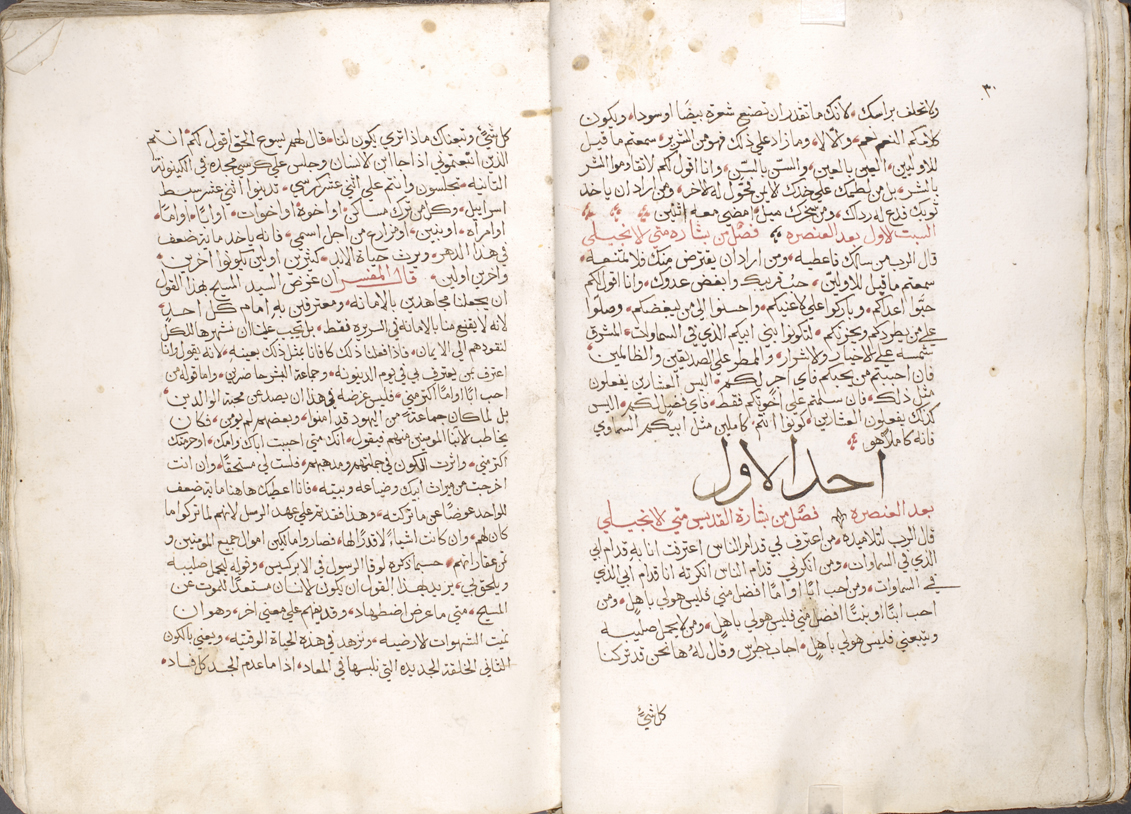 ٣٠
ولا تحلف براسك، لانك ما تقدر ان تصنع شعره بيضا او سودا، ويكون
كلامكم النعم نعم، ولالا لا، وما زاد علي ذلك فهو من الشرير، سمعتم ما قيل
للاولين، العين بالعين، والسن بالسن، وانا اقول لكم لا تقاوموا الشر
بالشر، بل من لطمك علي خدك لايمن فحول له لاخر، ومن اراد ان ياخد
ثوبك فدع له رداك، ومن سخرك ميل، امضي معه اثنين
السبت لاول بعد العنصره فصل من بشاره متي لانجيلي
قال الرب من سالك فاعطيه، ومن اراد ان يقترض منك فلا تمنعه،
سمعتم ما قيل للاولين، حب قريبك وابغض عدوك، وانا اقول لكم
حبوا اعداكم، وباركوا علي لاعنيكم، واحسنوا الي من يبغضكم، وصلوا
علي من يطردكم ويحزنكم، لتكونوا بني ابيكم الذي في السماوات، المشرق
شمسه علي لاخيار ولاشرار، والمطر علي الصديقين والظالمين،
فان احببتم من يحبكم فاي اجر لكم، اليس العشارين يفعلون
مثل ذلك، فان سلمتم علي اخوتكم فقط، فاي فضل لكم، اليس
كذلك يفعلون العشارين، كونوا انتم كاملين مثل ابيكم السماوي
فانه كامل هو
احد الاول
بعد العنصره فصل من بشارة القديس متي لانجيلي
قال الرب لتلاميذه، من اعترف لي قدام الناس اعترفت انا به قدام ابي
الذي في السماوات، ومن انكرني قدام الناس انكرته انا قدام ابي الذي
في السماوات، ومن احب ابًا او امًا افضل مني فليس هو لي باهلٍ، ومن
احب ابنًا او بنتًا افضل مني فليس هو لي باهلٍ، ومن لا يحمل صليبه
ويتبعني فليس هو لي باهلٍ، اجاب بطرس وقال له ها نحن قد تركنا
كل شيءٍ
كل شيءٍ وتبعناك ماذا تري يكون لنا، قال لهم يسوع الحق اقول لكم انتم
الذين اتبعتموني اذا جا ابن لانسان وجلس علي كرسي مجده في الكينونة
التانيه، تجلسون وانتم علي اثني عشر كرسي، تدينوا اثني عشر سبط
اسراييل، وكل من ترك مساكن، او اخوة او اخوات، او ابًا، او امًا،
او امراه، او بنين، او مزارع من اجل اسمي، فانه ياخد ماية ضعف
في هذا الدهر، ويرث حياة الابد، كتيرين اولين يكونوا اخرين،
واخرين اولين، قال المفسر ان غرض السيد المسيح بهذا القول
ان يجعلنا مجاهدين بالامانه، ومعترفين به امام كل احدٍ،
لانه لا يقنع منا بالامانه في السريره فقط، بل يجب علينا ان نشهرها للكل
لنقودهم الي الايمان، فاذا فعلنا ذلك كافانا بمثل ذلك بعينه، لانه يقول وانا
اعترف بمن يعترف بي في يوم الدينونه، وجماعة البشر حاضرين، واما قوله من
احب ابًا او امًا اكتر مني، فليس غرضه في هذا ان يصد عن محبة الوالدين
بل لما كان جماعةً من اليهود قد امنوا، وبعضهم لم يومن، فكان
يخاطب لابنا المومنين منهم فيقول، انك متي احببت اباك وامك، او حرمتك
اكتر مني، واثرت الكون في جملتهم ومدهبهم، فلست لي مستحقًا، وان انت
اخرجت من ميراث ابيك وضياعه وبيته، فانا اعطيك هاهنا ماية ضعف
للواحد عوضًا عن ما تركته، وهذا فقد تم علي عهد الرسل لانهم لما تركوا ما
كان لهم، وان كانت اشياءً لا قدر لها، فصاروا مالكين اموال جميع المومنين و
تمن عقاراتهم، حسبما دكره لوقا الرسول في الابركسيس، وقوله يحمل صليبه
ويلحق بي، يريد بهذا القول ان يكون لانسان مستعدًا للموت عن
المسيح، متي ما عرض اضطهاد، وقد يفهم علي معني اخر، وهو ان
يميت الشهوات لارضيه، ويزهد في هذه الحياة الوقتيه، ويعني بالكون
التاني الخلقة الجديده التي نلبسها في المعاد، اذا ما عدم الجسد كل فساد،